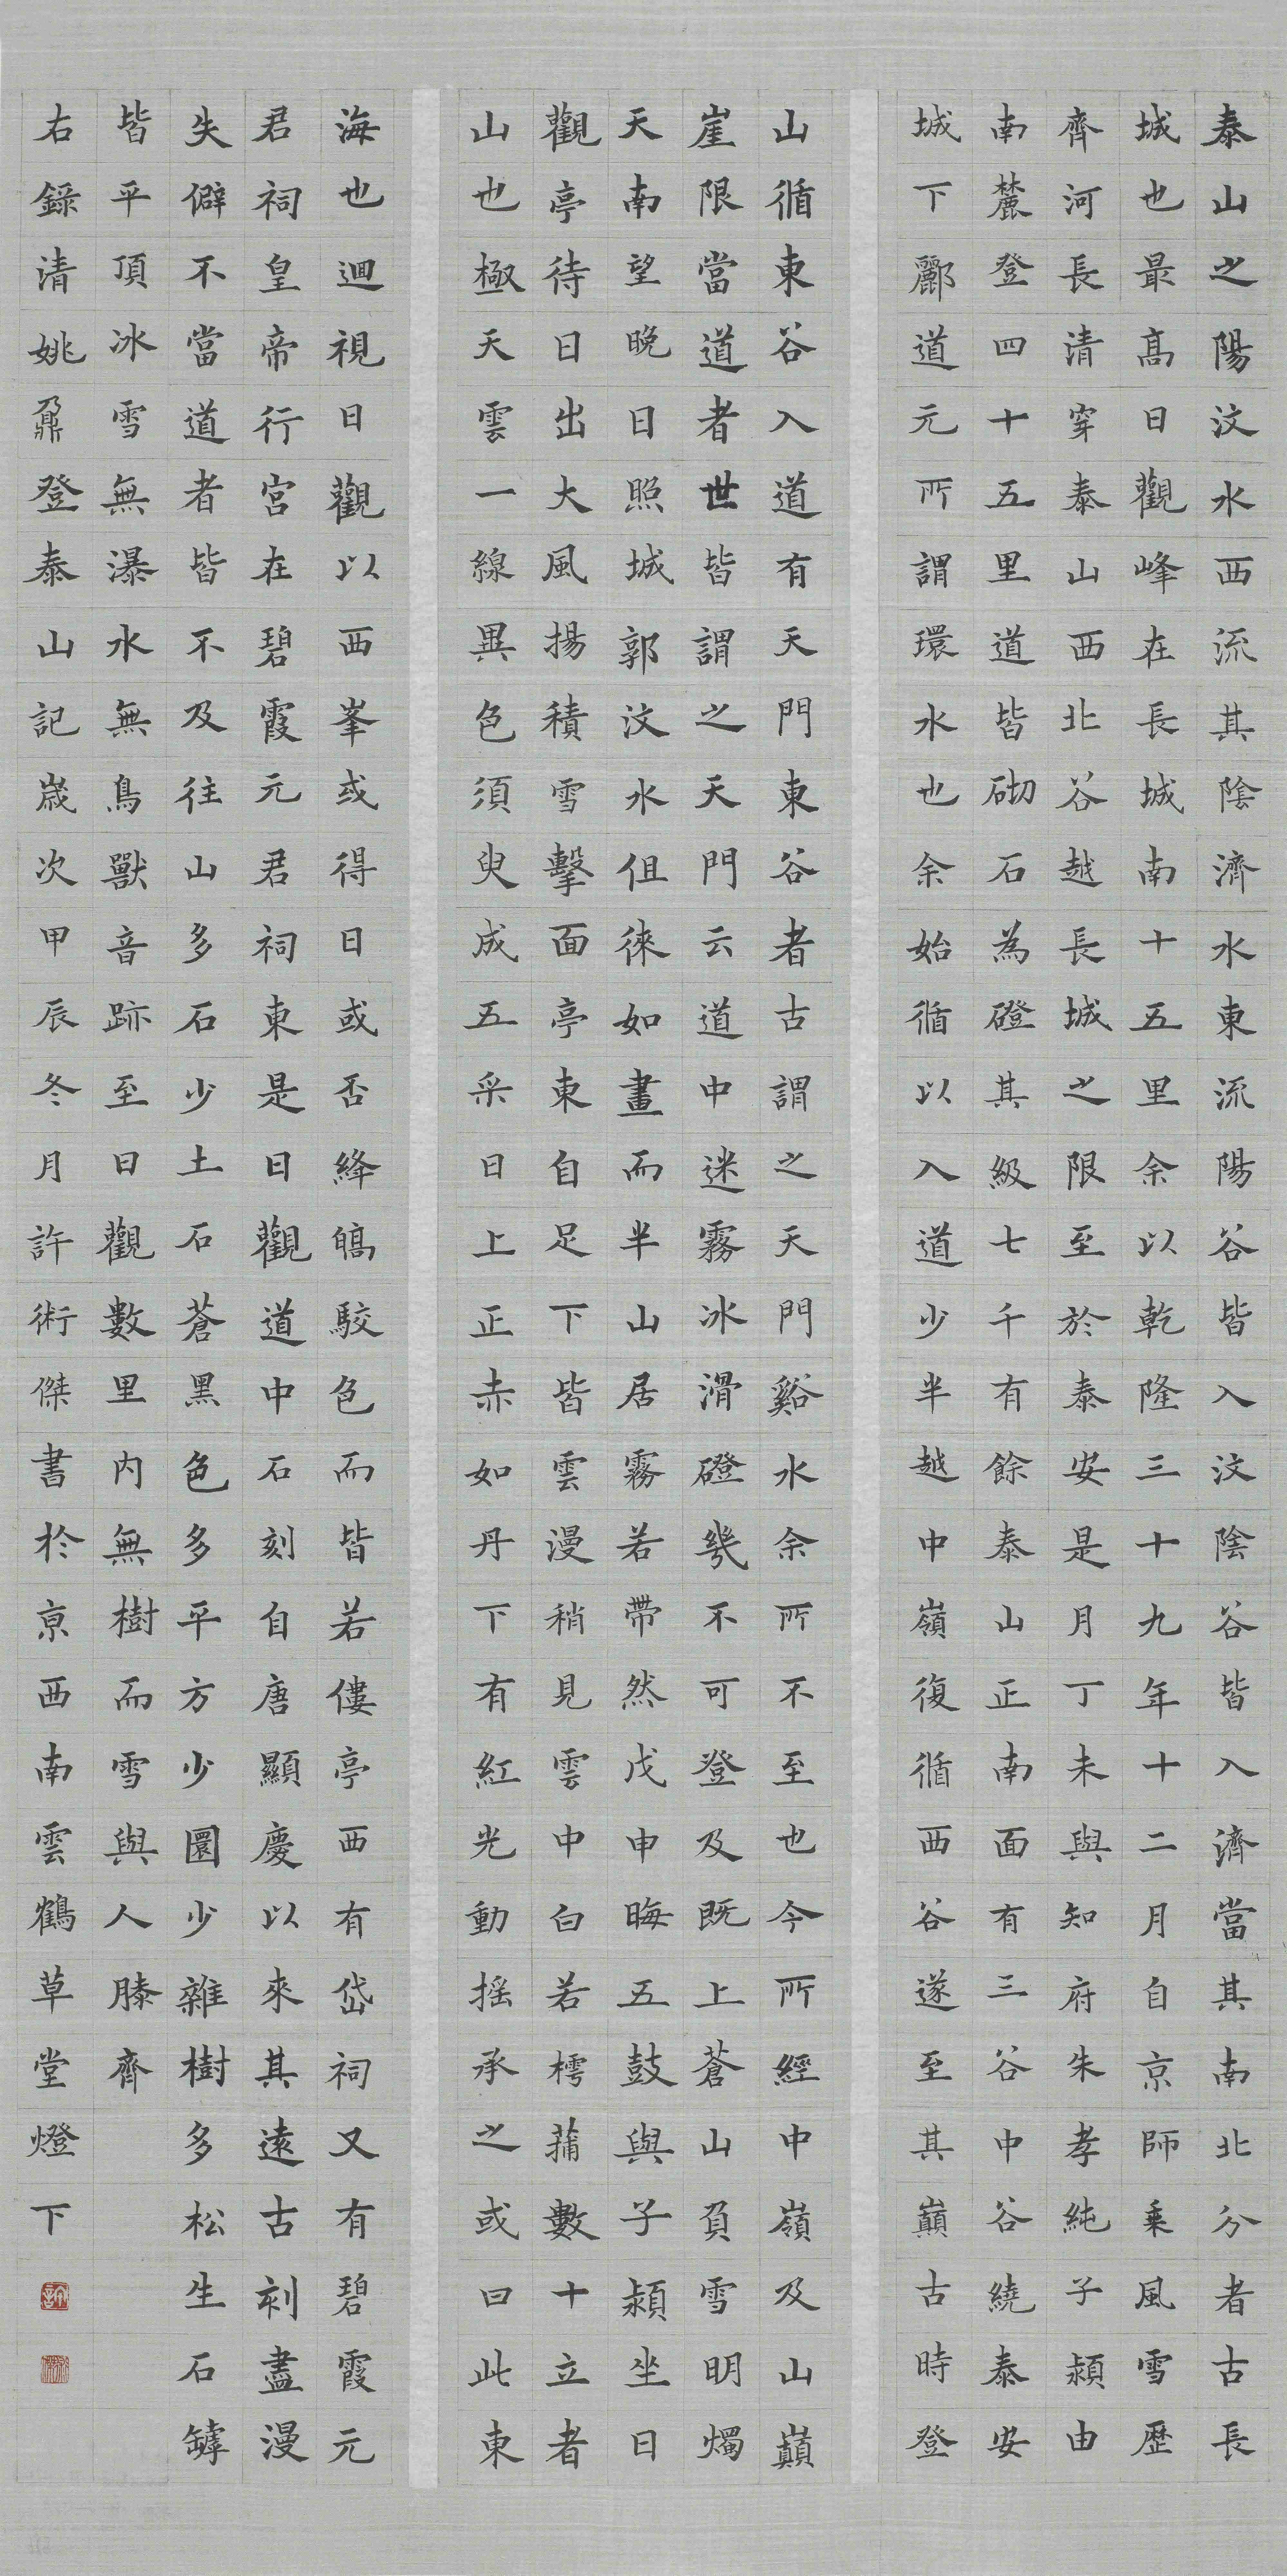 泰山之陽汶水西流其陰濟水東流陽谷皆入汶陰谷皆入濟當其南北分者古長
城也最高日觀峰在長城南十五里余以乾隆三十九年十二月自京師乗風雪歷
齊河長清穿泰山西北谷越長城之限至於泰安是月丁未與知府朱孝純子潁由
南麓登四十五里道皆砌石為磴其級七千有餘泰山正南面有三谷中谷繞泰安
城下酈道元所謂環水也余始循以入道少半越中嶺復循西谷遂至其巔古時登
山循東谷入道有天門東谷者古謂之天門谿水余所不至也今所經中嶺及山巔
崖限當道者世皆謂之天門云道中迷霧冰滑磴幾不可登及既上蒼山負雪明燭
天南望晚日照城郭汶水伹徠如畫而半山居霧若帶然戊申晦五鼓與子潁坐日
觀亭待日出大風揚積雪擊面亭東自足下皆雲漫稍見雲中白若樗蒲數十立者
山也極天雲一線異色須臾成五采日上正赤如丹下有紅光動搖承之或曰此東
海也迴視日觀以西峯或得日或否絳皜駮色而皆若僂亭西有岱祠又有碧霞元
君祠皇帝行宮在碧霞元君祠東是日觀道中石刻自唐顯慶以來其遠古刻盡漫
失僻不當道者皆不及往山多石少土石蒼黑色多平方少圜少雜樹多松生石罅
皆平頂冰雪無瀑水無鳥獸音跡至日觀數里內無樹而雪與人膝齊
右錄清姚鼐登泰山記歲次甲辰冬月許術傑書於京西南雲鶴草堂燈下